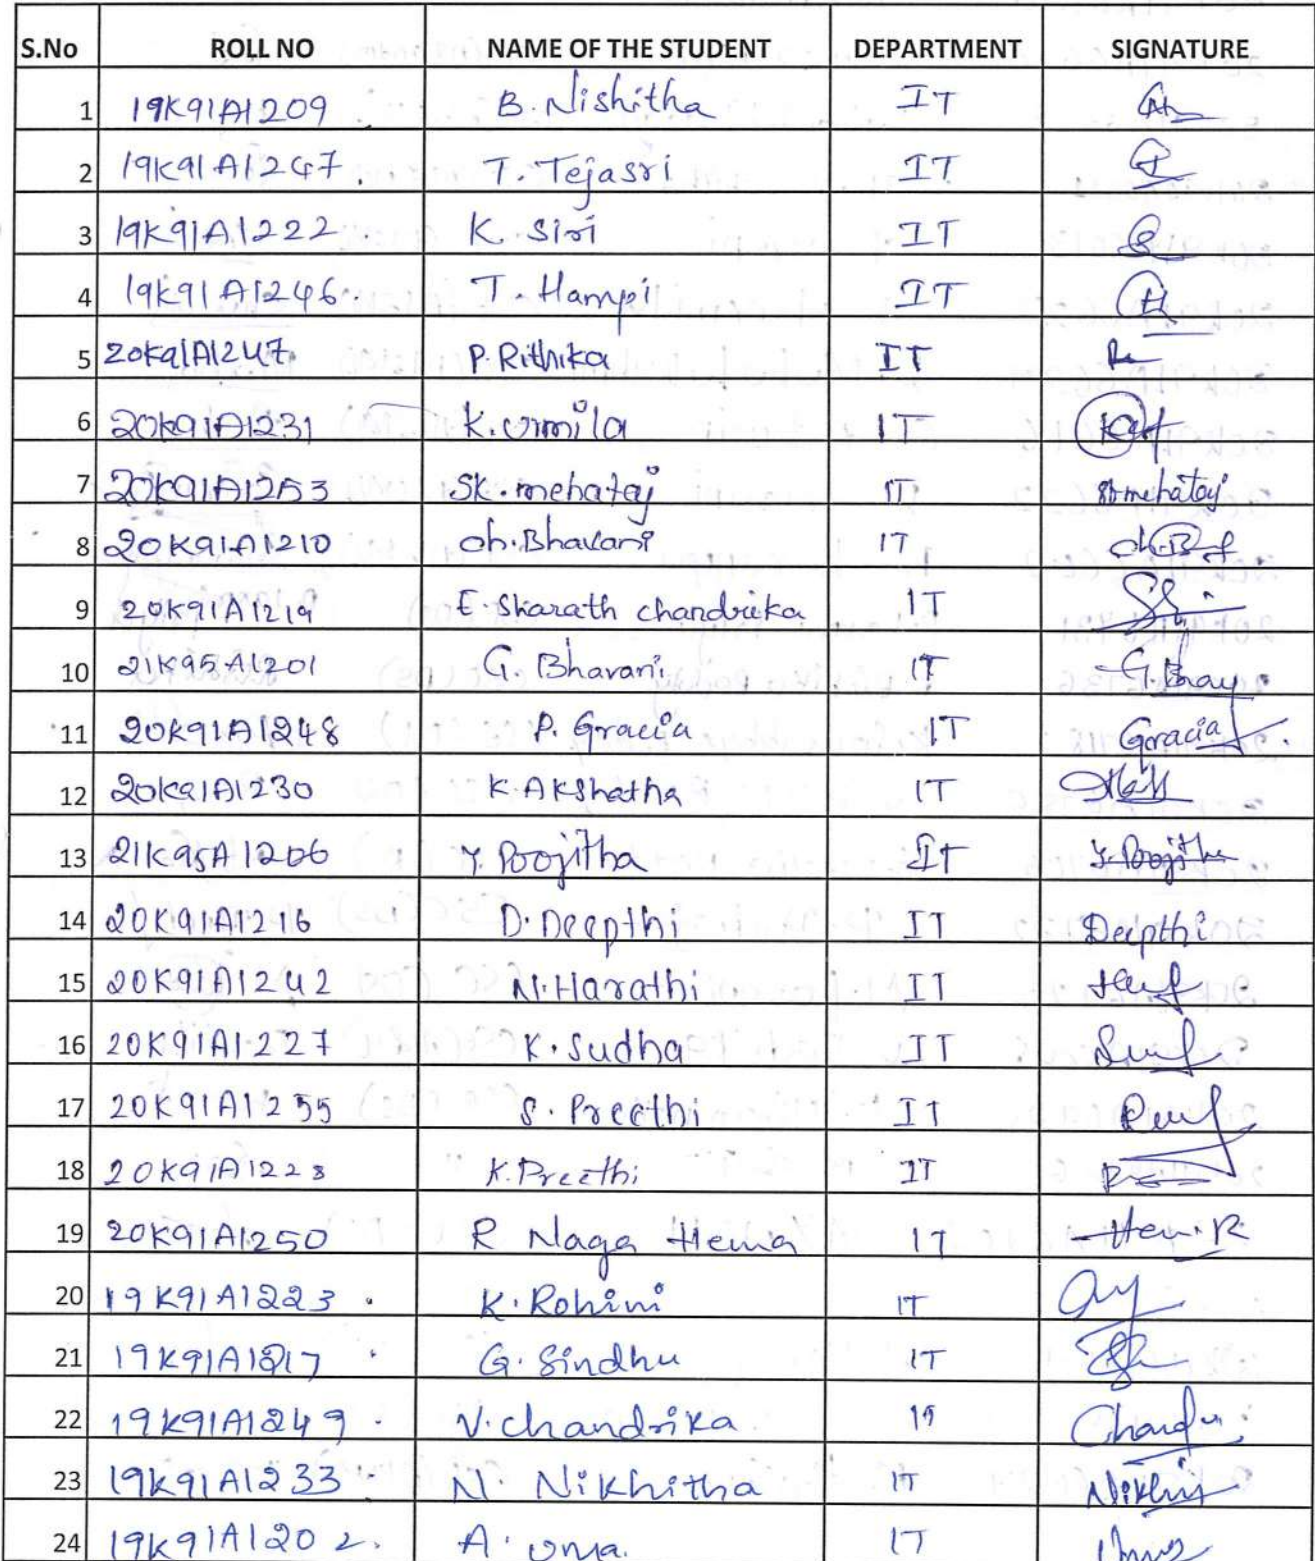 S.No ROLL NO NAME OF THE STUDENT DEPARTMENT SIGNATURE
1 19K91A1209 B. Nishitha IT
2 19K91A1247. T. Tejasri IT
3 19K91A1222 K. Siri IT
4 19K91A1246. T. Hampi IT
5 20K91A1247 P. Rithika IT
6 20K91A1231 K. Urmila IT
7 20K91A1253 SK. mehataj IT Sk mehataj
8 20K91A1210 Ch. Bhavani IT
9 20K91A1219 E. Sharath chandrika IT
10 21K95A1201 G. Bhavani IT G. Bhav
11 20K91A1248 P. Gracia IT Gracia
12 20K91A1230 K. Akshatha IT
13 21K95A1206 Y. Poojitha IT Y. Poojitha
14 20K91A1216 D. Deepthi IT Deepthi
15 20K91A1242 N. Harathi IT
16 20K91A1227 K. Sudha IT
17 20K91A1255 S. Preethi IT
18 20K91A1228 K. Preethi IT
19 20K91A1250 R Naga Hema IT Hem. R
20 19K91A1223. K. Rohini IT
21 19K91A1217 G. Sindhu IT
22 19K91A1249. V. chandrika IT
23 19K91A1233 N. Nikhitha IT
24 19K91A1202. A. Uma. IT